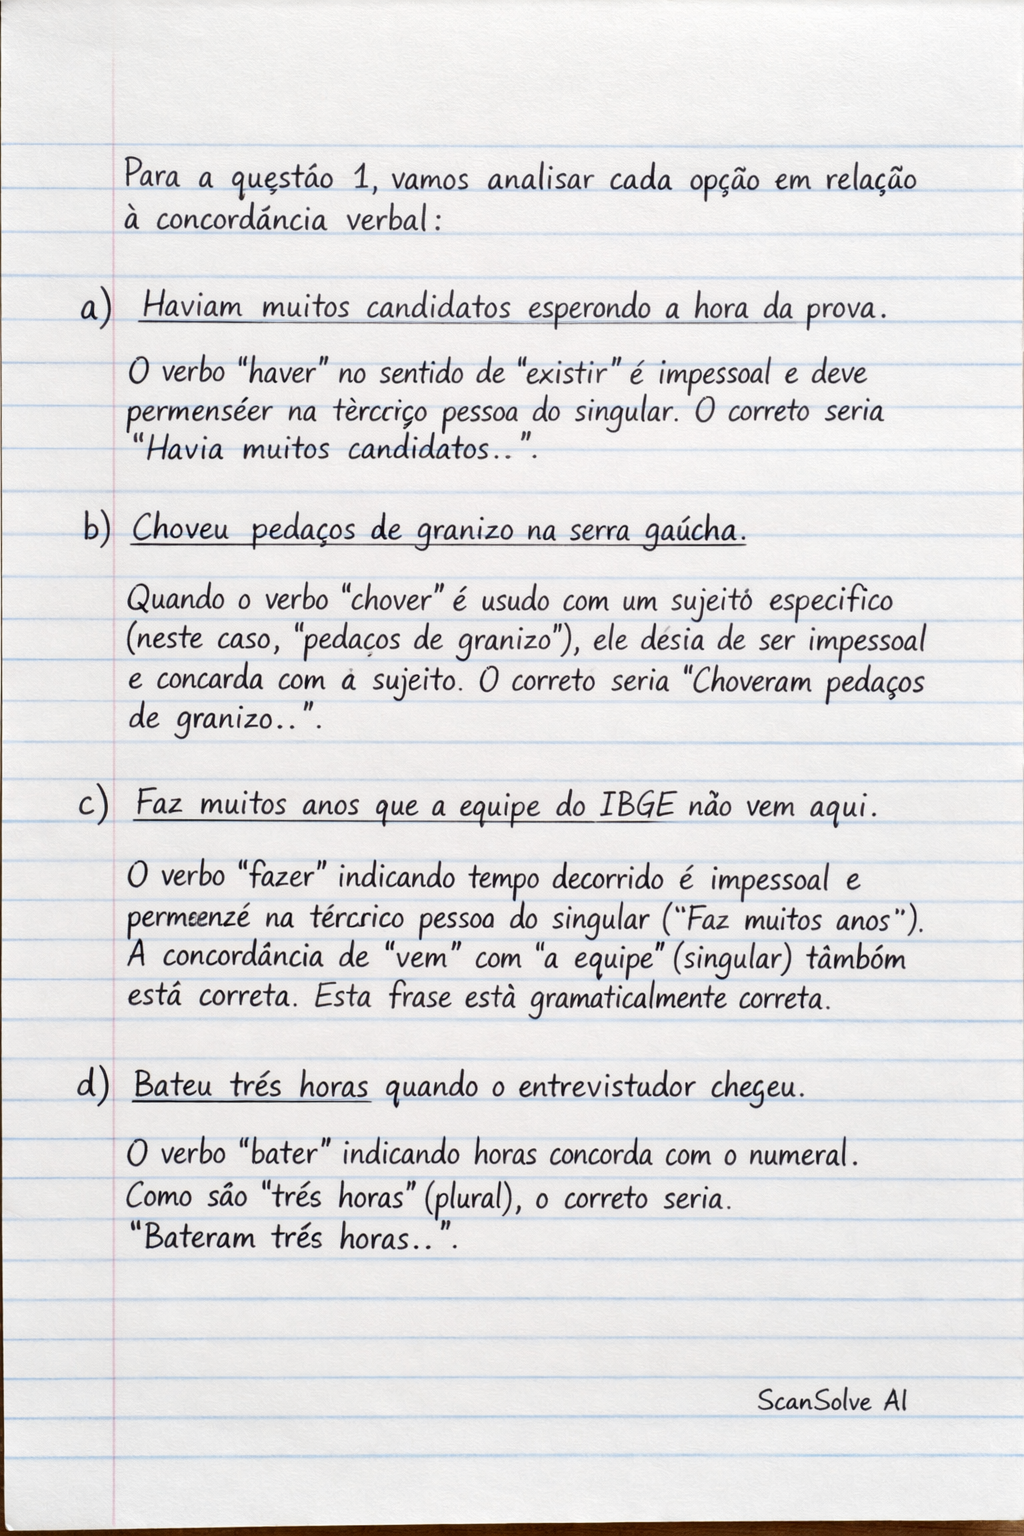 Para a questáo 1, vamos analisar cada opção em relação
à concordáncia verbal:
a) Haviam muitos candidatos esperondo a hora da prova.
O verbo "haver" no sentido de "existir" é impessoal e deve
permenséer na tèrcciço pessoa do singular. O correto seria
"Havia muitos candidatos..".
b) Choveu pedaços de granizo na serra gaúcha.
Quando o verbo "chover" é usudo com um sujeitò especifico
(neste caso, "pedaços de granizo"), ele désia de ser impessoal
e concarda com à sujeito. O correto seria "Choveram pedaços
de granizo..".
c) Faz muitos anos que a equipe do IBGE não vem aqui.
O verbo "fazer" indicando tempo decorrido é impessoal e
permeenzé na tércrico pessoa do singular ("Faz muitos anos").
A concordância de "vem" com "a equipe" (singular) tâmbóm
está correta. Esta frase està gramaticalmente correta.
d) Bateu trés horas quando o entrevistudor chegeu.
O verbo "bater" indicando horas concorda com o numeral.
Como sâo "trés horas" (plural), o correto seria.
"Bateram trés horas..".
ScanSolve AI